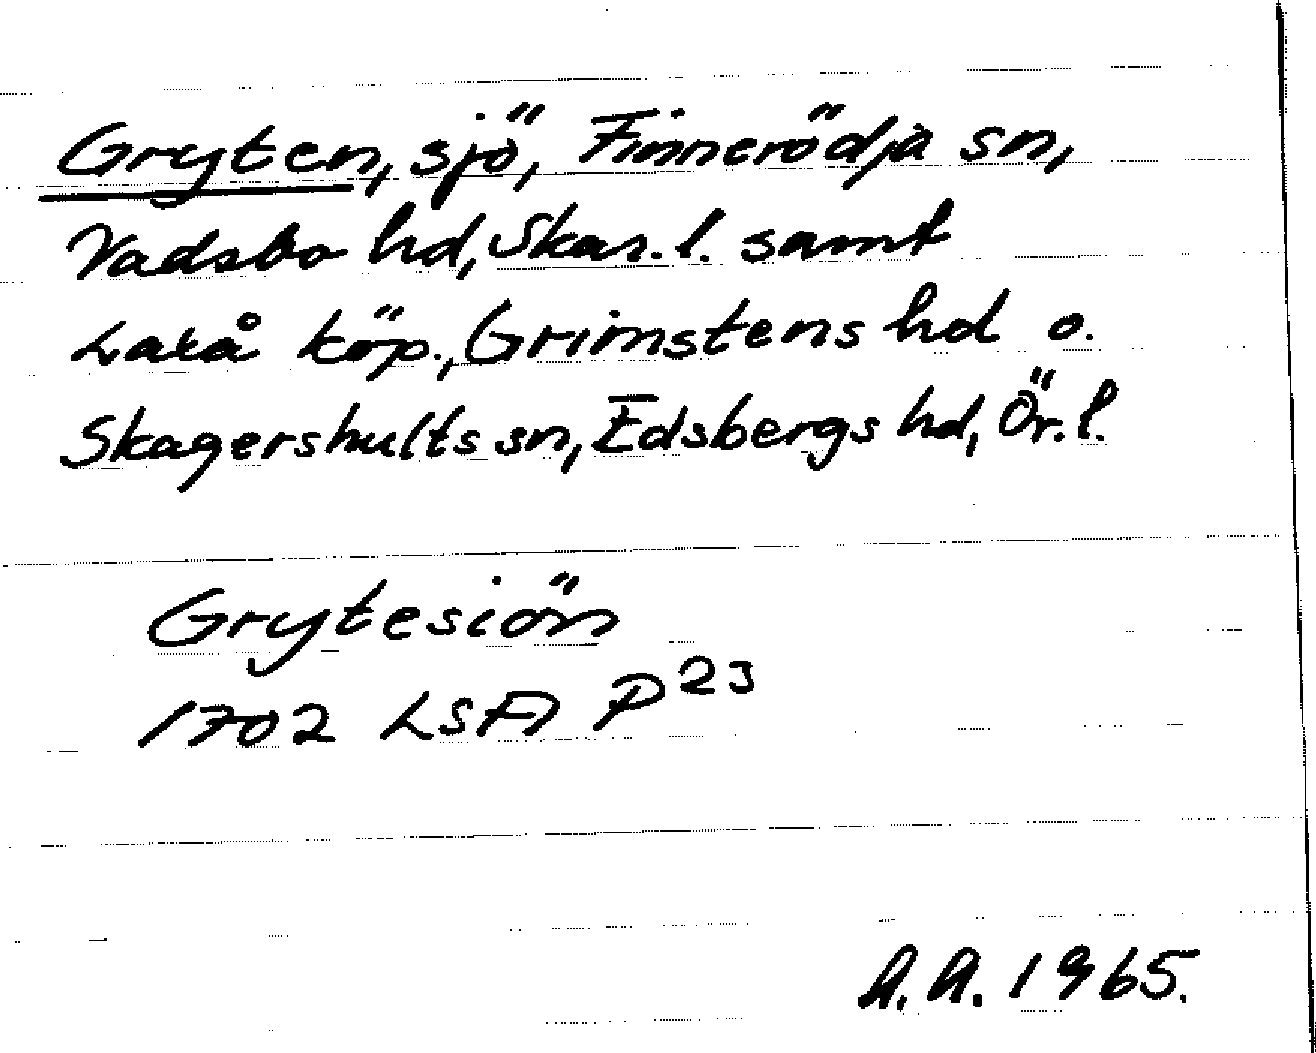 Gryten, sjö, Finnerödja sn,
Vadsbo hd, Skar. l. samt
Laxå köp., Grimstens hd o.
Skagershults sn, Edsbergs hd, Ör. l.
Grytesiön
1702 LSA P 23
A.A. 1965.